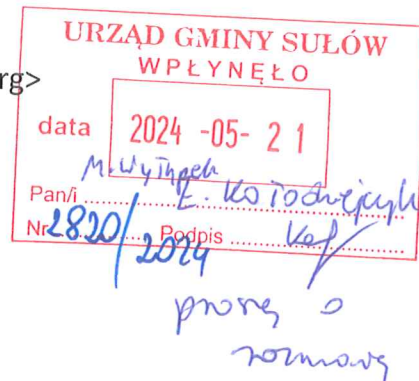 rg>
URZĄD GMINY SUŁÓW
WPŁYNĘŁO
data 2024 -05- 21
Pan/i E. Kołodziejczyk
Nr 2820/2024 Podpis
proszę o
rozmowę